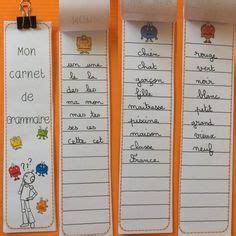 Mon
carnet
de
Grammaire
MON
un une
le la
des les
ma mon
mes tes
ses ces
cette cet
chien
chat
garçon
fille
maîtresse
piscine
maison
classe
France
rouge
vert
noir
blanc
petit
grand
vieux
neuf